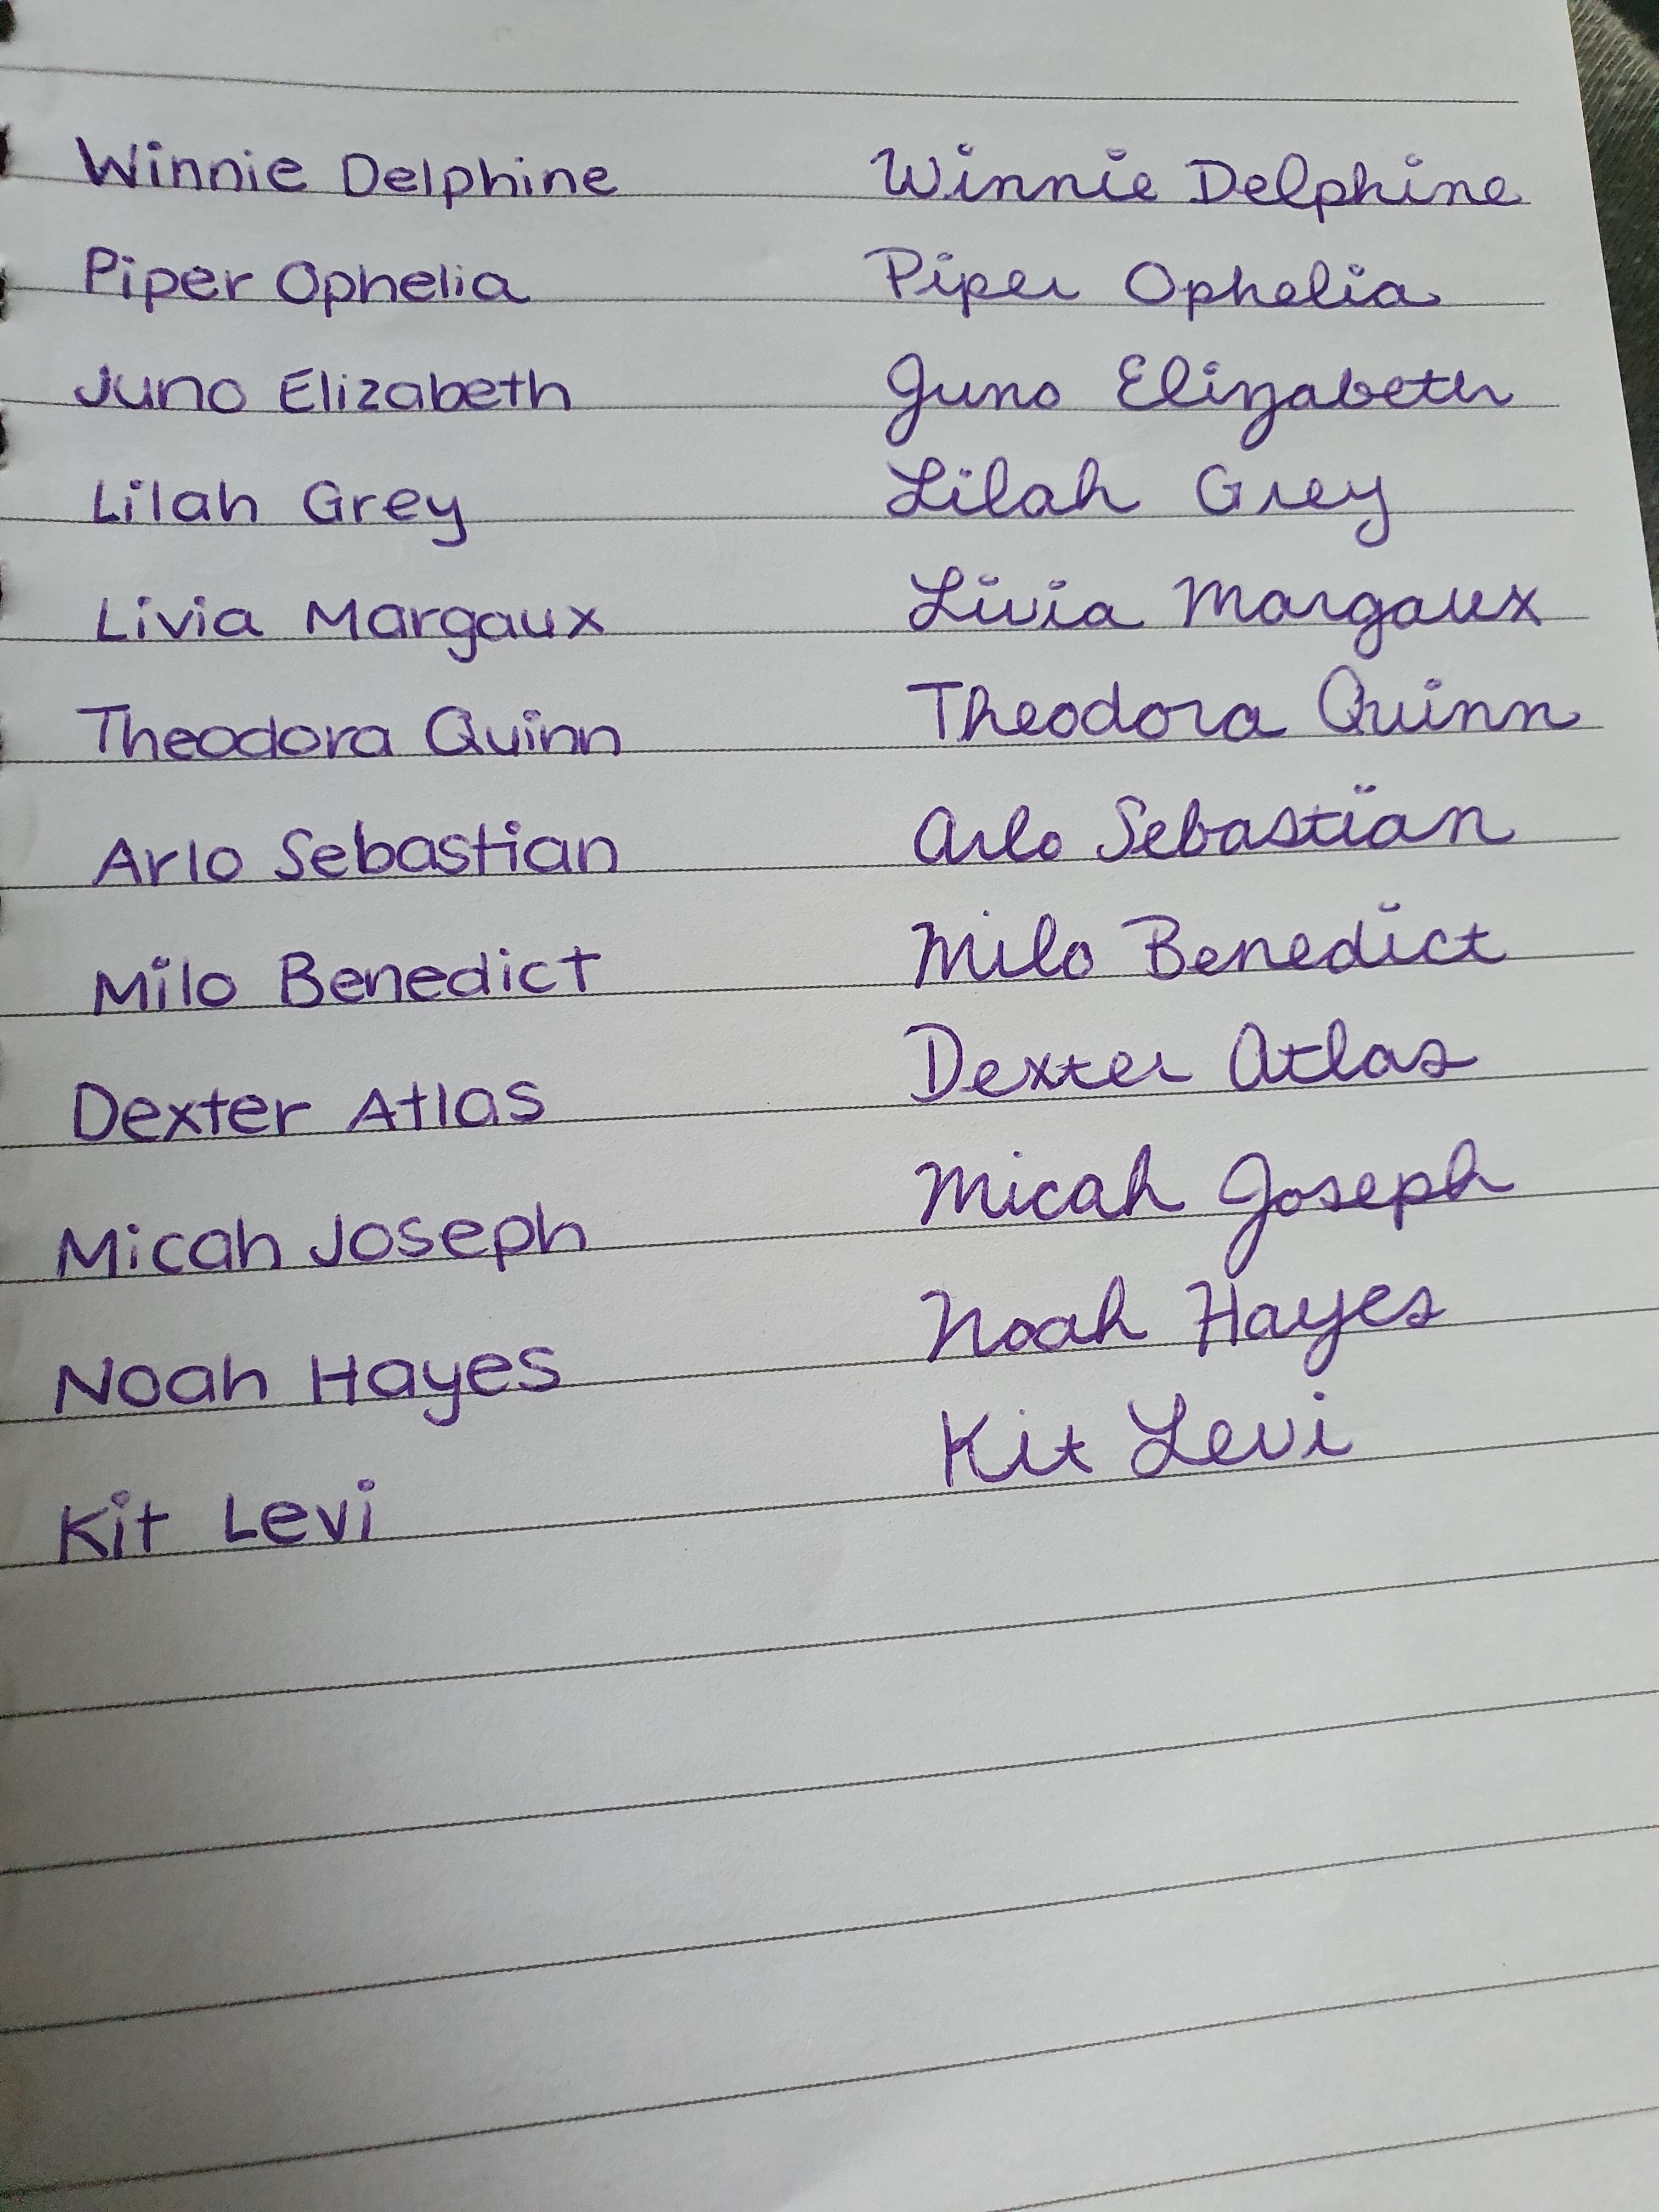 Winnie Delphine Winnie Delphine
Piper Ophelia Piper Ophelia
Juno Elizabeth Juno Elizabeth
Lilah Grey Lilah Grey
Livia Margaux Livia Margaux
Theodora Quinn Theodora Quinn
Arlo Sebastian Arlo Sebastian
Milo Benedict Milo Benedict
Dexter Atlas Dexter Atlas
Micah Joseph Micah Joseph
Noah Hayes Noah Hayes
Kit Levi Kit Levi